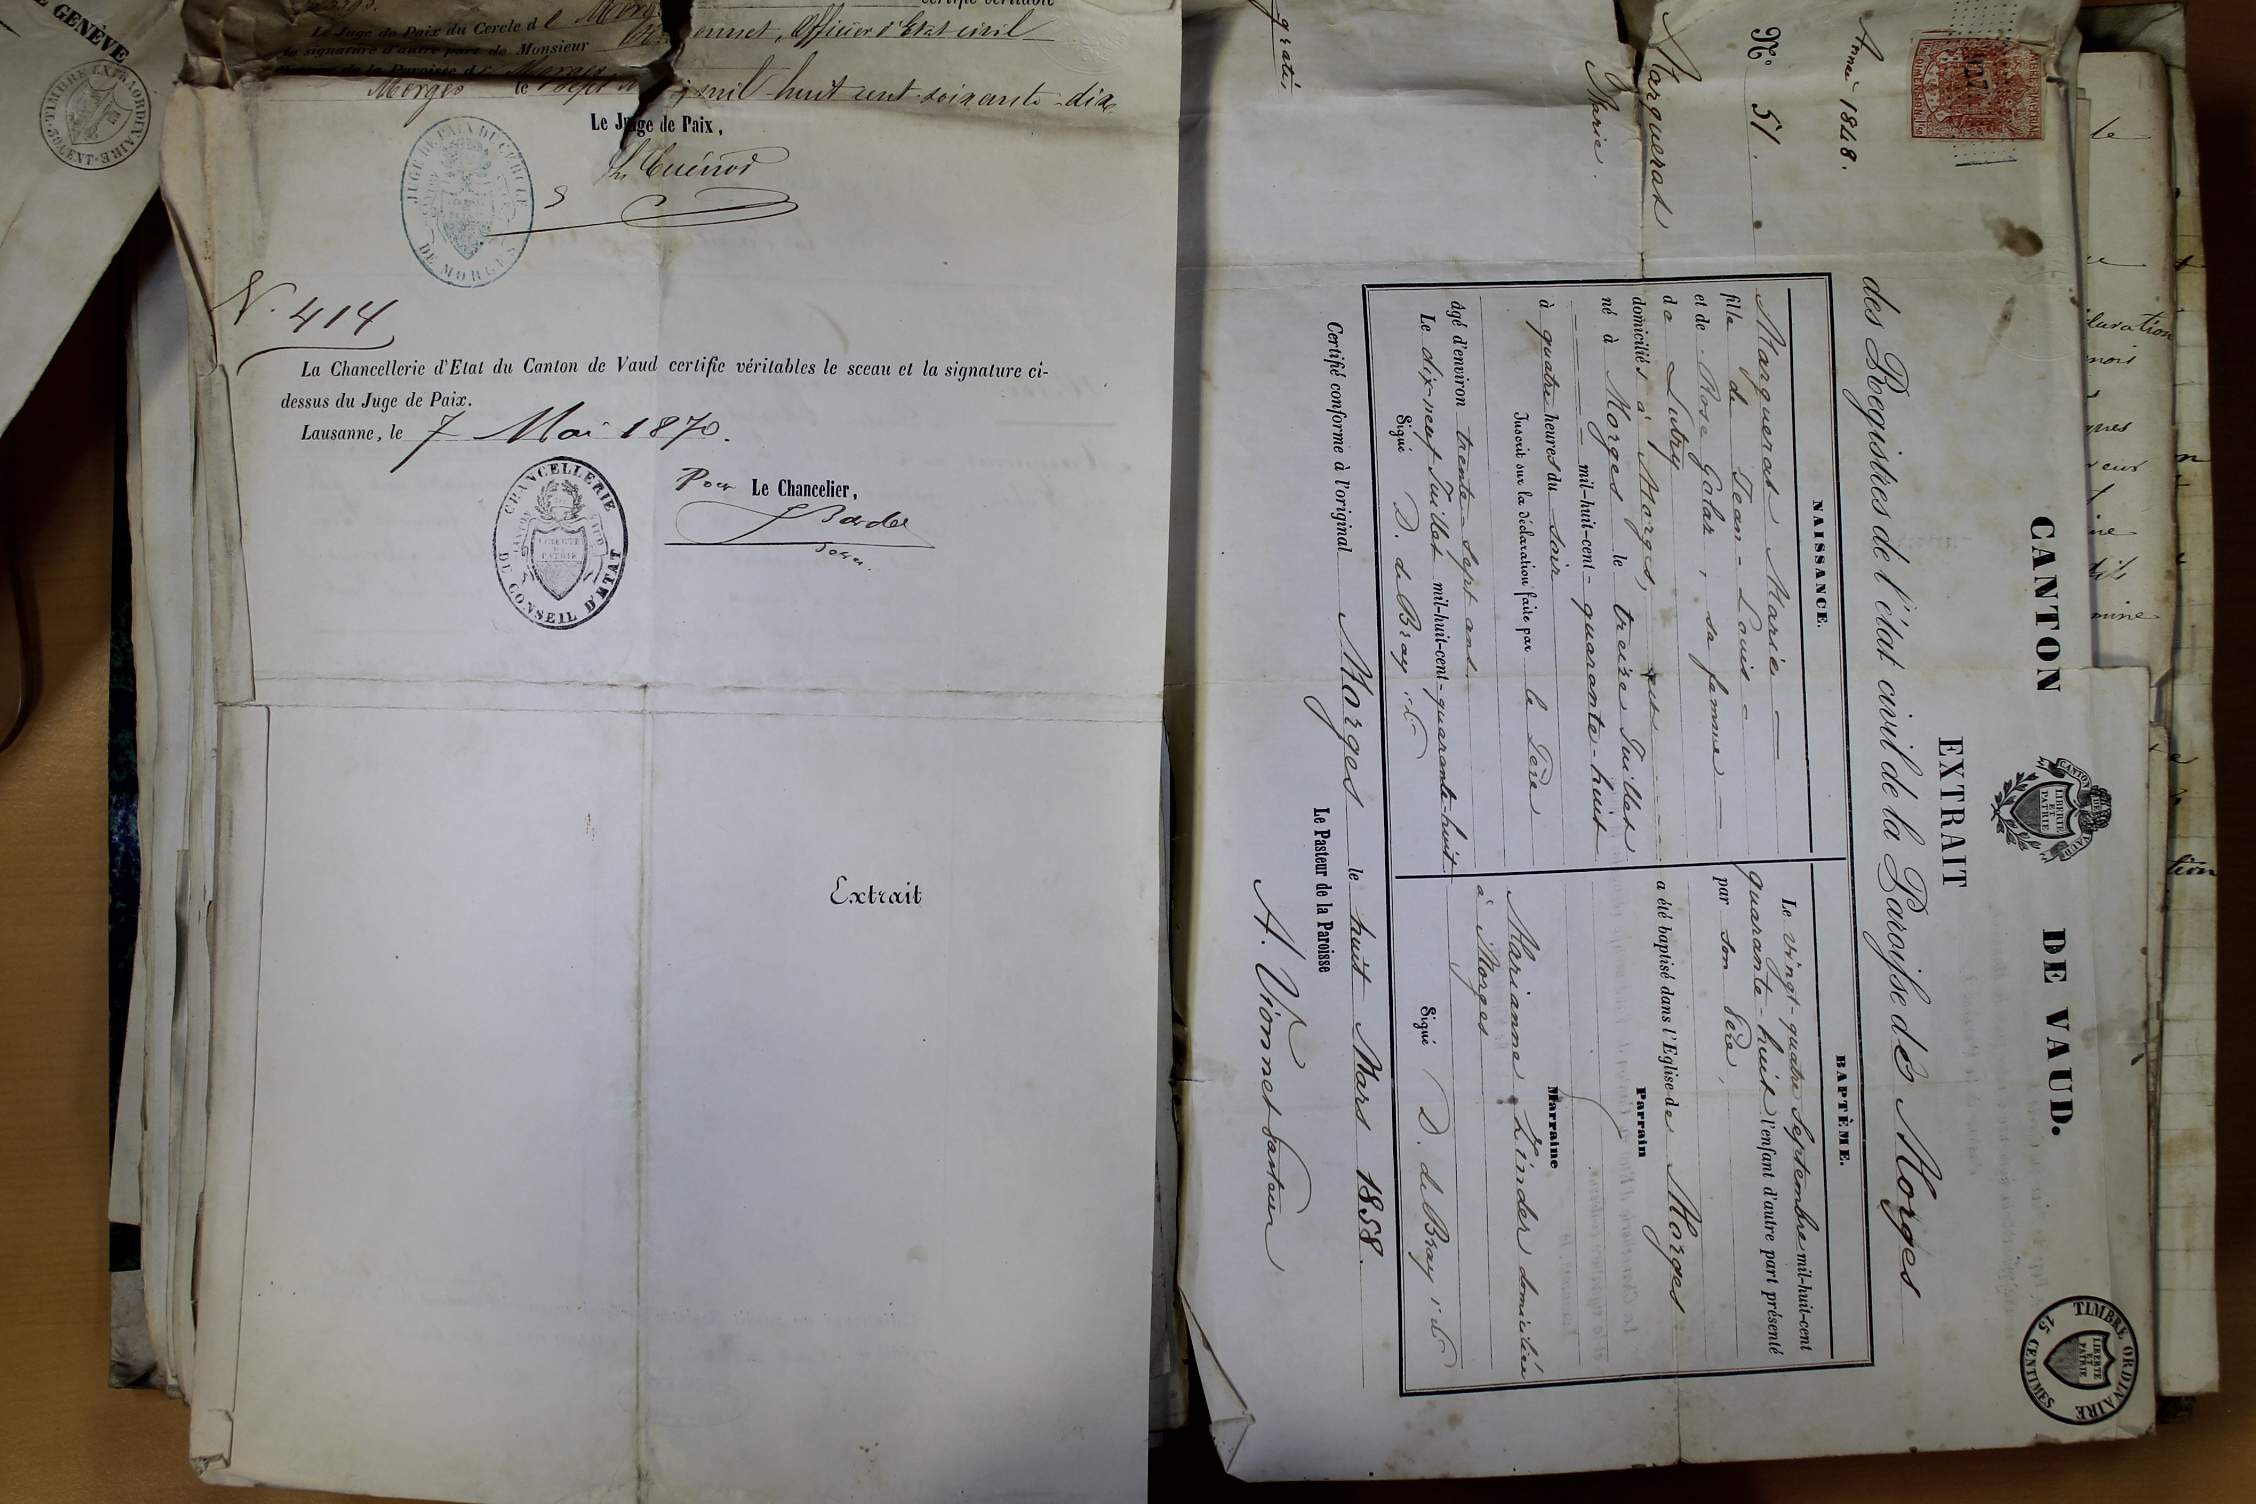 E GENÈVE
TIMBRE EXTRAORDINAIRE
certifié véritable
Le Juge de Paix du Cercle de Morg
la signature d'autre part de Monsieur onnet, Officier d'Etat civil
de la Paroisse de Morges
Morges le Sept mil huit cent soixante-dix
Le Juge de Paix,
JUGE DE PAIX DU CERCLE
DE MORGES
N. 414
La Chancellerie d'Etat du Canton de Vaud certifie véritables le sceau et la signature ci-
dessus du Juge de Paix.
Lausanne, le 7 Mai 1870.
CHANCELLERIE
DU CONSEIL D'ETAT
CANTON VAUD
LIBERTÉ
ET
PATRIE
Pour Le Chancelier,
Extrait
CANTON DE VAUD.
CANTON DE VAUD
LIBERTÉ
ET
PATRIE
TIMBRE ORDINAIRE
15 CENTIMES
LIBERTÉ
ET
PATRIE
EXTRAIT
des Registres de l'état civil de la Paroisse de Morges
Année 1848.
N° 51.
Marguerat
Marie.
gratis
NAISSANCE.
Marguerat Marie
fille de Jean-Louis
et de Rose Golaz, sa femme
de Lutry
domiciliés à Morges, est
né à Morges le treize Juillet
mil-huit-cent-quarante-huit
à quatre heures du soir
Inscrit sur la déclaration faite par le Père
âgé d'environ trente-sept ans.
Le dix-neuf Juillet mil-huit-cent-quarante-huit
Signé D. de Bray
BAPTÊME.
Le vingt-quatre Septembre mil-huit-cent
quarante-huit l'enfant d'autre part présenté
par son Père,
a été baptisé dans l'Eglise de Morges
Parrain
Marraine
Marianne Zinder domiciliée
à Morges
Signé D. de Bray
Certifié conforme à l'original Morges le huit Mars 1858.
Le Pasteur de la Paroisse
A. Vionnet pasteur